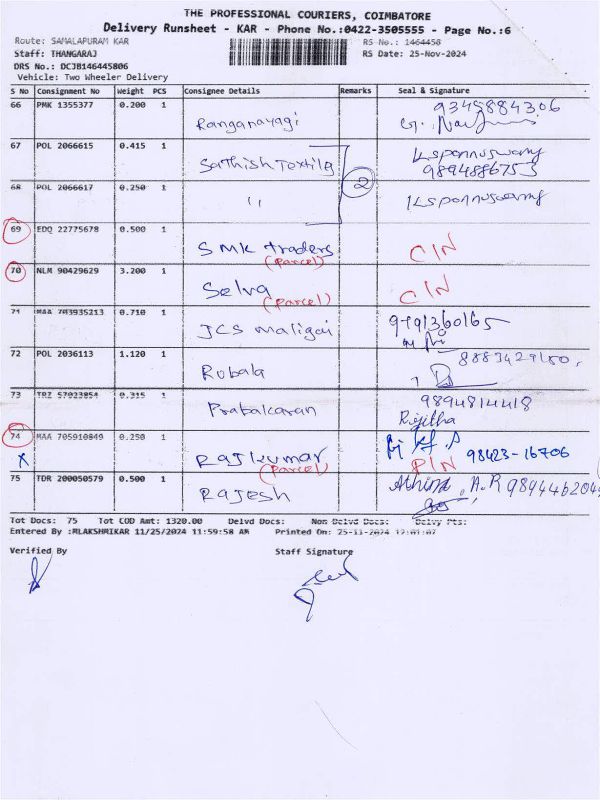 THE PROFESSIONAL COURIERS, COIMBATORE
Delivery Runsheet - KAR - Phone No.:0422-3505555 - Page No.:6
Route: SAMALAPURAM KAR RS No.: 1464458
Staff: THANGARAJ RS Date: 25-Nov-2024
DRS No.: DCJB146445806
Vehicle: Two Wheeler Delivery
S No Consignment No Weight PCS Consignee Details Remarks Seal & Signature
66 PMK 1355377 0.200 1 Ranganayagi 9345884306
67 POL 2066615 0.415 1 Sathish Textile Ksponnuswamy
9894886753
68 POL 2066617 0.250 1 " 2 Ksponnuswamy
69 EDQ 22775678 0.500 1 SMK traders
(Parcel) CIN
70 NLM 90429629 3.200 1 Selva
(Parcel) CIN
71 MAA 703935213 0.710 1 JCS Maligai 9791360165
72 POL 2036113 1.120 1 Rubala
73 TRZ 57023854 0.315 1 Prabakaran 9894814418
Rijitha
74 MAA 705910849 0.250 1 Rajkumar
X (Parcel) PIN 98423-16706
75 TDR 200050579 0.500 1 Rajesh A.R
Tot Docs: 75 Tot COD Amt: 1320.00 Delvd Docs: Non Delvd Docs: Delvy Pts:
Entered By :MLAKSHMIKAR 11/25/2024 11:59:58 AM Printed On: 25-11-2024 12:01:07
Verified By Staff Signature